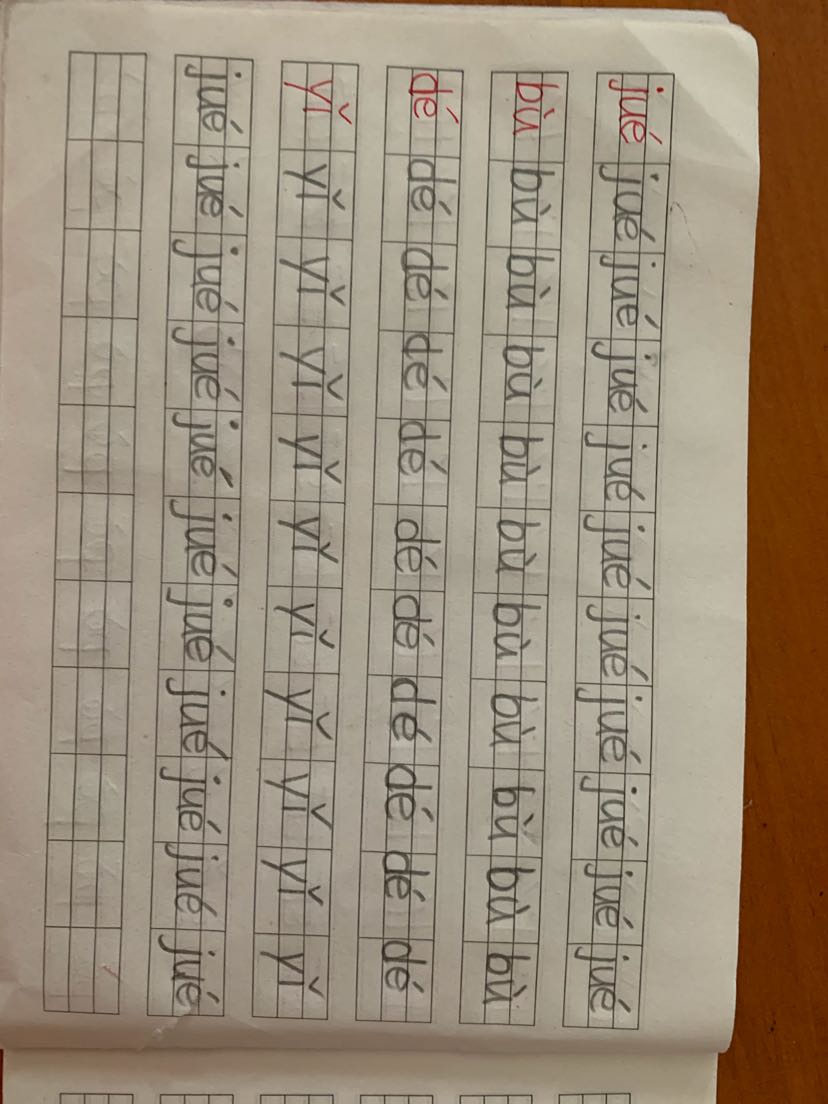 jué jué jué jué jué jué jué jué jué jué jué
bù bù bù bù bù bù bù bù bù bù bù
dé dé dé dé dé dé dé dé dé dé dé
yǐ yǐ yǐ yǐ yǐ yǐ yǐ yǐ yǐ yǐ yǐ
jué jué jué jué jué jué jué jué jué jué jué